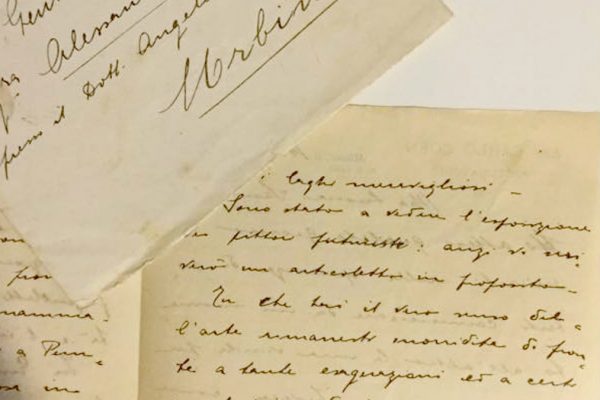 Gen
ra Alessan
presso il Dott. Angelo
Urbin
laghi meravigliosi –
Sono stato a vedere l'esposizione
pittori futuristi: anzi vi scri-
verò un articoletto in proposito –
Tu che hai il vero senso del-
l'arte rimarresti inorridita di fron-
te a tante esagerazioni ed a certe
namma-
a
in